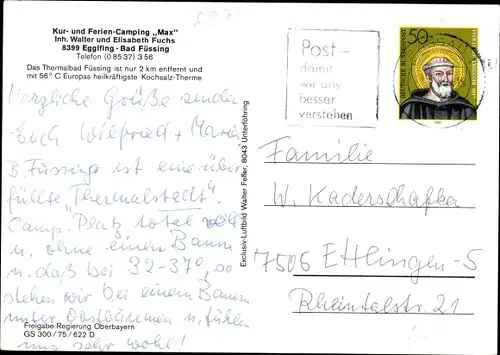 Kur- und Ferien-Camping „Max"
Inh. Walter und Elisabeth Fuchs
8399 Egglfing - Bad Füssing
Telefon (0 85 37) 3 56
Das Thermalbad Füssing ist nur 2 km entfernt und
mit 56° C Europas heilkräftigste Kochsalz-Therme
Herzliche Grüße senden
Euch Wilfried + Maria
B. Füssing ist eine über
füllte „Thermalstadt".
Camp. Platz, total voll
u. ohne einen Baum
u. daß bei 32-37°, so
stehen wir bei einem Bauern
unter Obstbäumen u. fühlen
uns sehr wohl!
Freigabe Regierung Oberbayern
GS 300 / 75 / 622 D
Exclusiv-Luftbild Walter Feller, 8043 Unterföhring
Post-
damit
wir uns
besser
verstehen
50
DEUTSCHE BUNDESPOST
Familie
W. Kaderschafka
7506 Ettlingen-5
Rheintalstr. 21